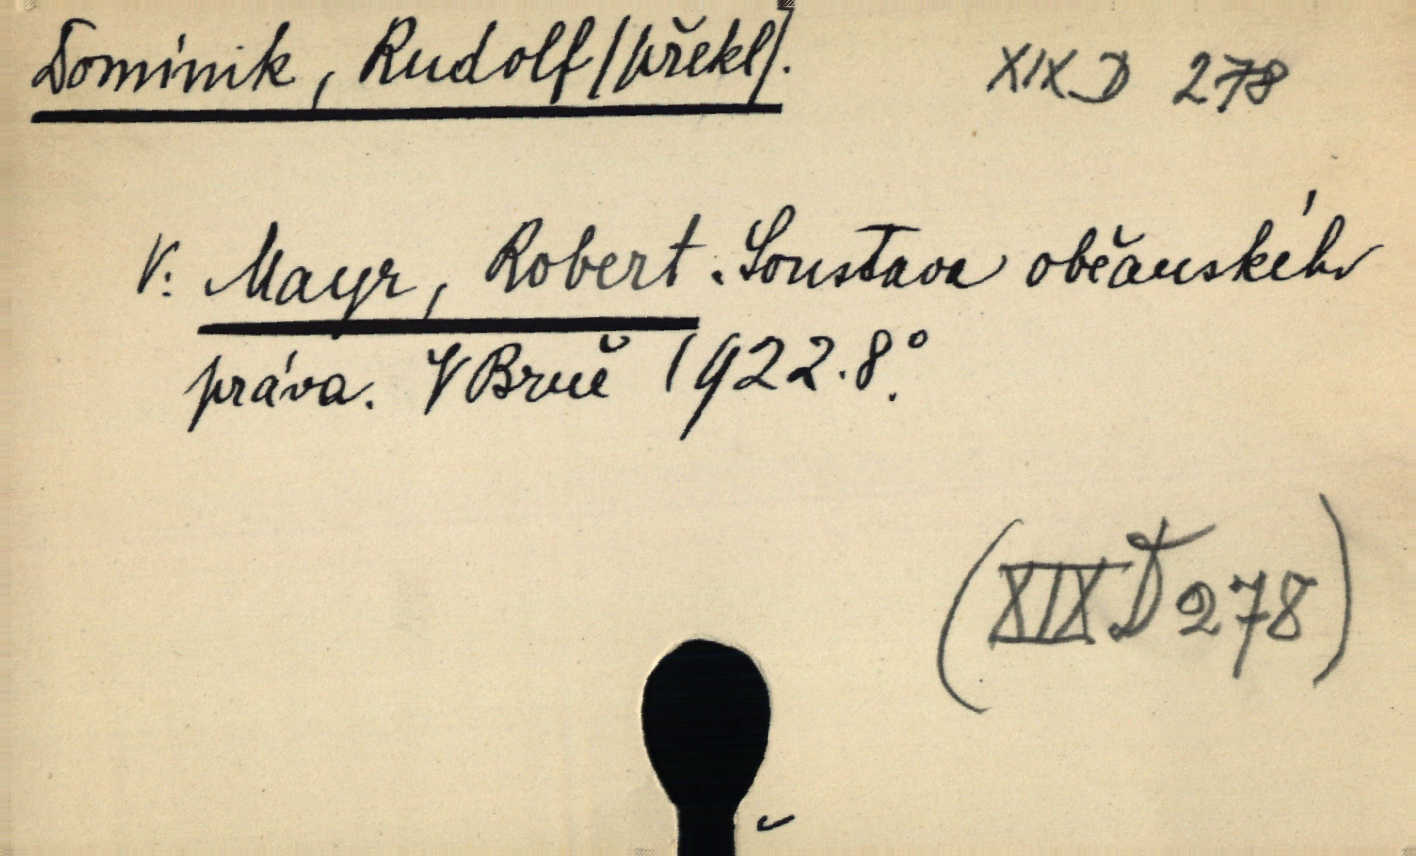 Dominik, Rudolf /překl/. XIX D 278
V: Mayr, Robert. Soustava občanského
práva. V Brně 1922. 8°.
(XIX D 278)